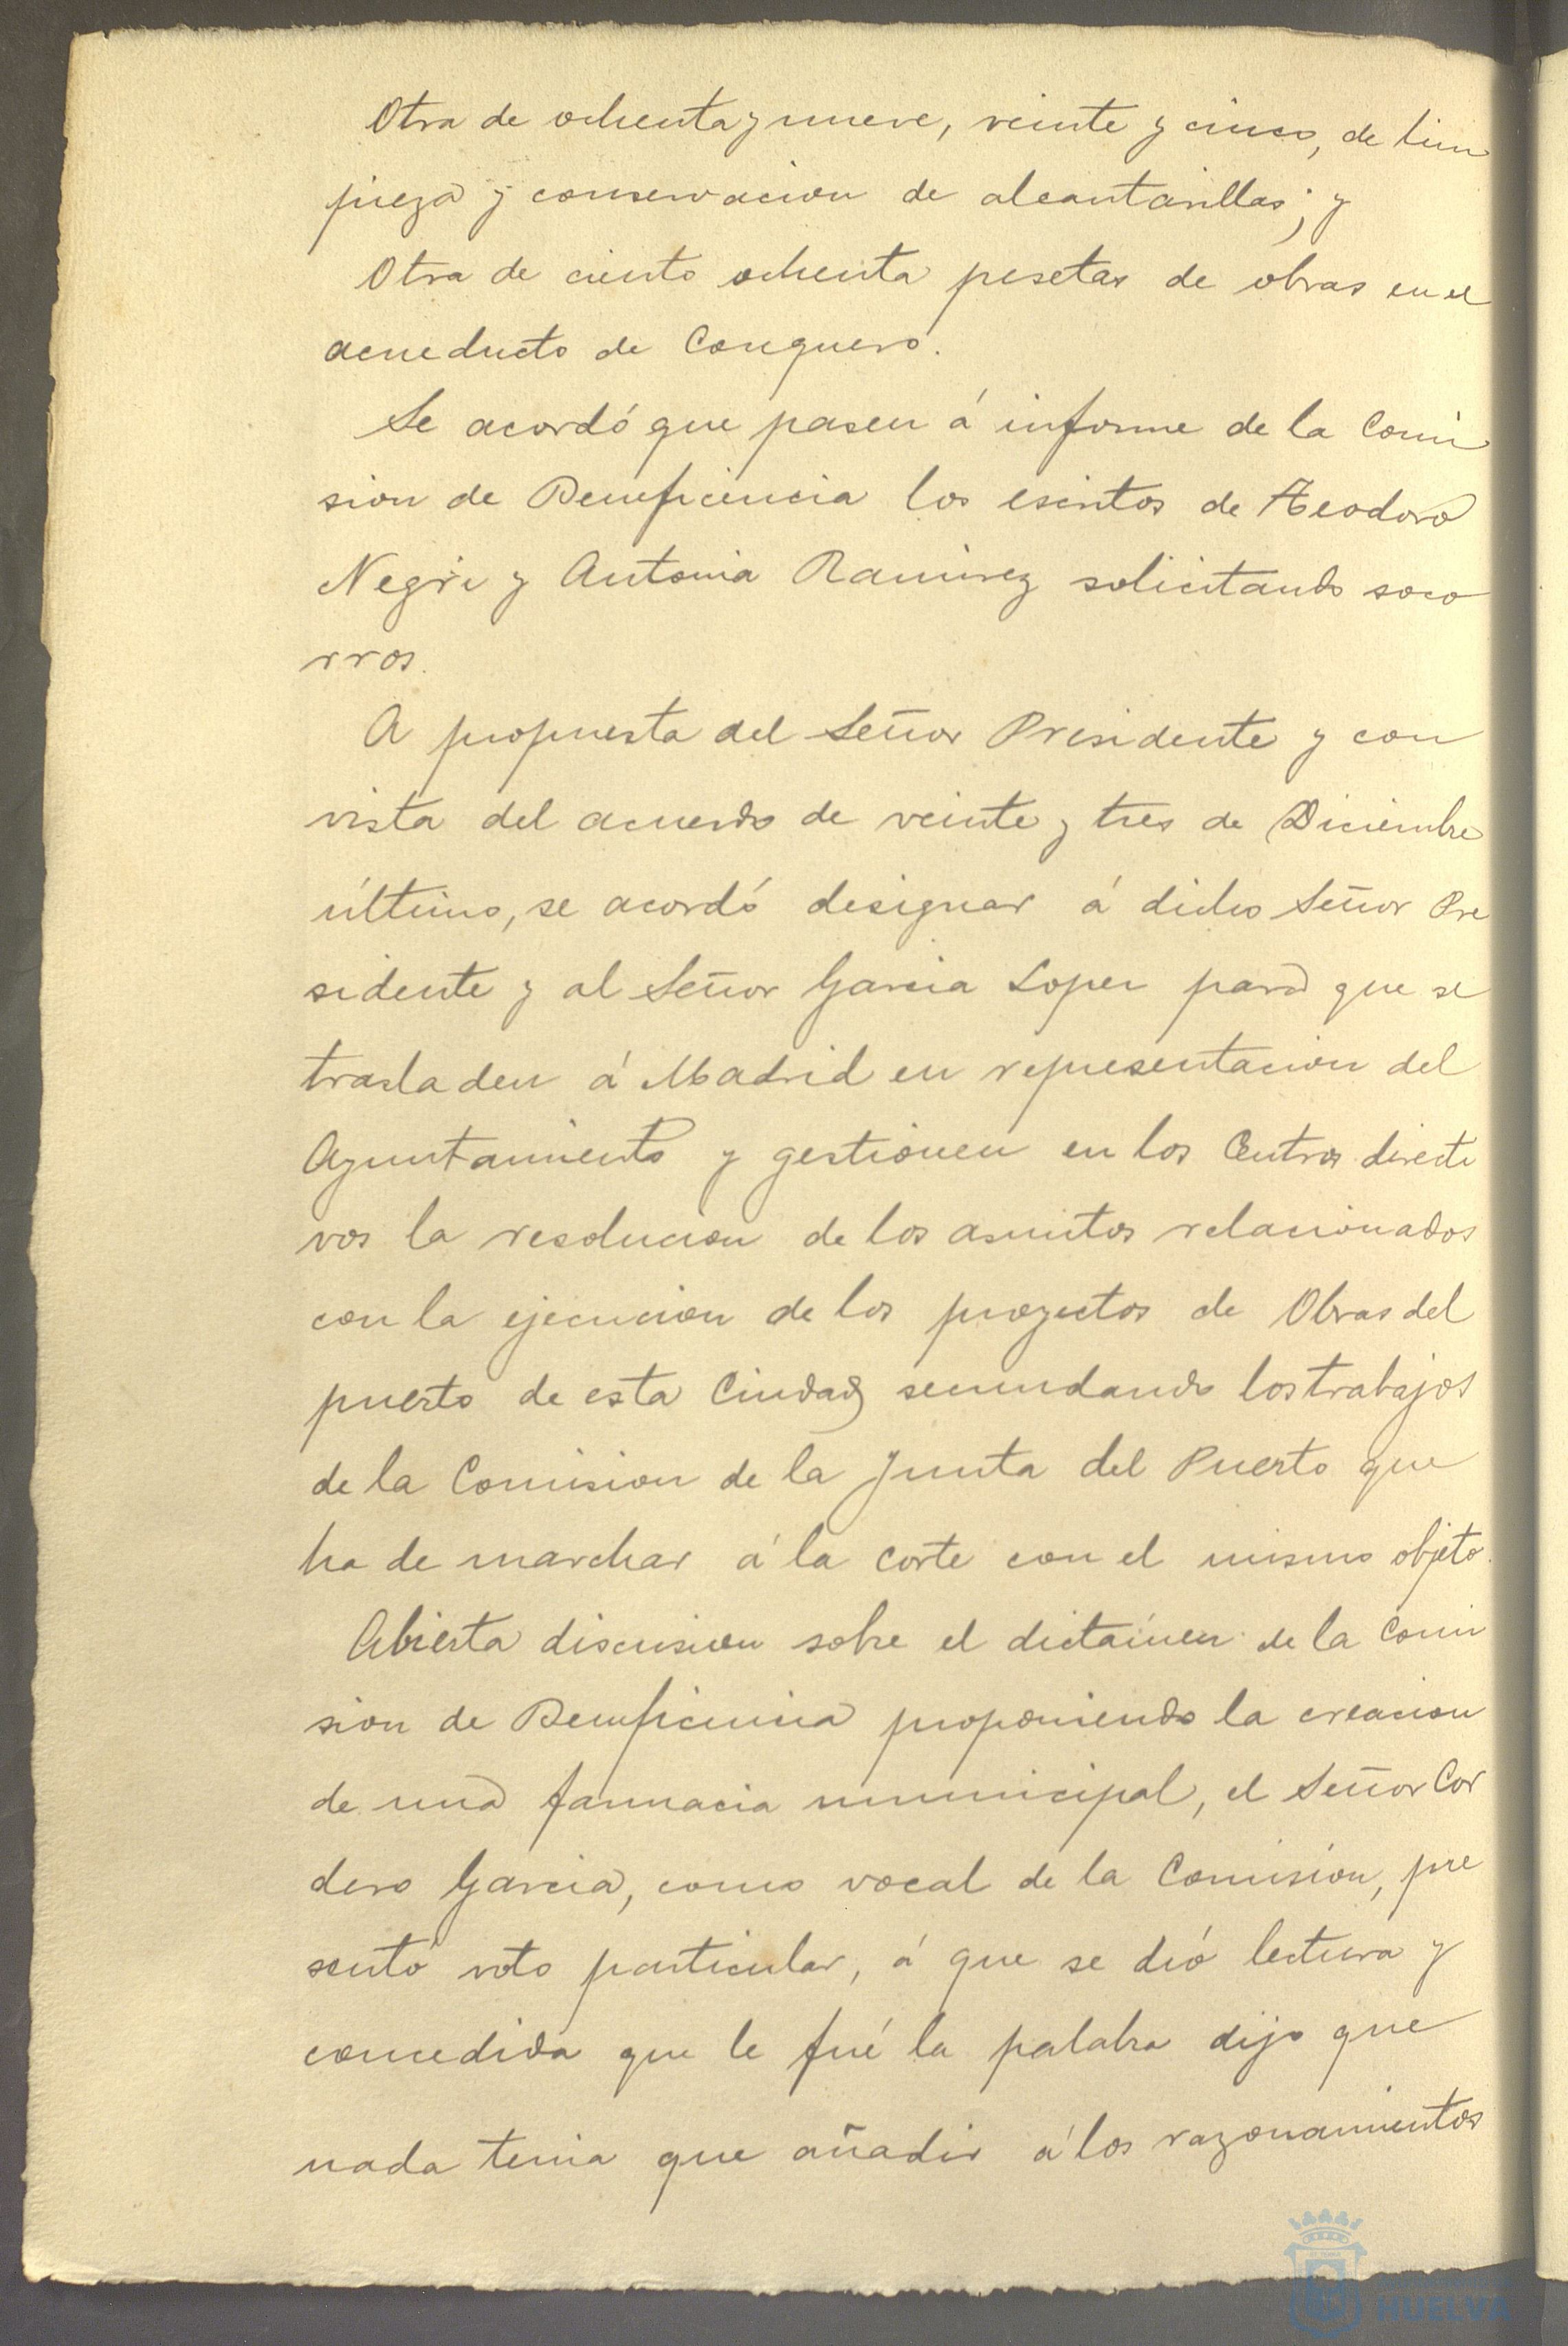 Otra de ochenta y nueve, veinte y cinco, de lim
pieza y conservacion de alcantarillas; y
Otra de ciento ochenta pesetas de obras en el
acueducto de Conquero.
Se acordó que pasen á informe de la Comi
sion de Beneficencia los escritos de Teodoro
Negri y Antonia Ramirez solicitando soco
rros.
A propuesta del Señor Presidente y con
vista del acuerdo de veinte y tres de Diciembre
último, se acordó designar á dicho Señor Pre
sidente y al Señor Garcia Lopez para que se
trasladen á Madrid en representacion del
Ayuntamiento y gestionen en los Centros directi
vos la resolucion de los asuntos relacionados
con la ejecucion de los proyectos de Obras del
puerto de esta Ciudad secundando los trabajos
de la Comision de la Junta del Puerto que
ha de marchar á la corte con el mismo objeto.
Abierta discusion sobre el dictámen de la Comi
sion de Beneficencia proponiendo la creacion
de una farmacia municipal, el Señor Cor
dero Garcia, como vocal de la Comision, pre
sentó voto particular, á que se dió lectura y
concedida que le fué la palabra dijo que
nada tenia que añadir á los razonamientos
HUELVA